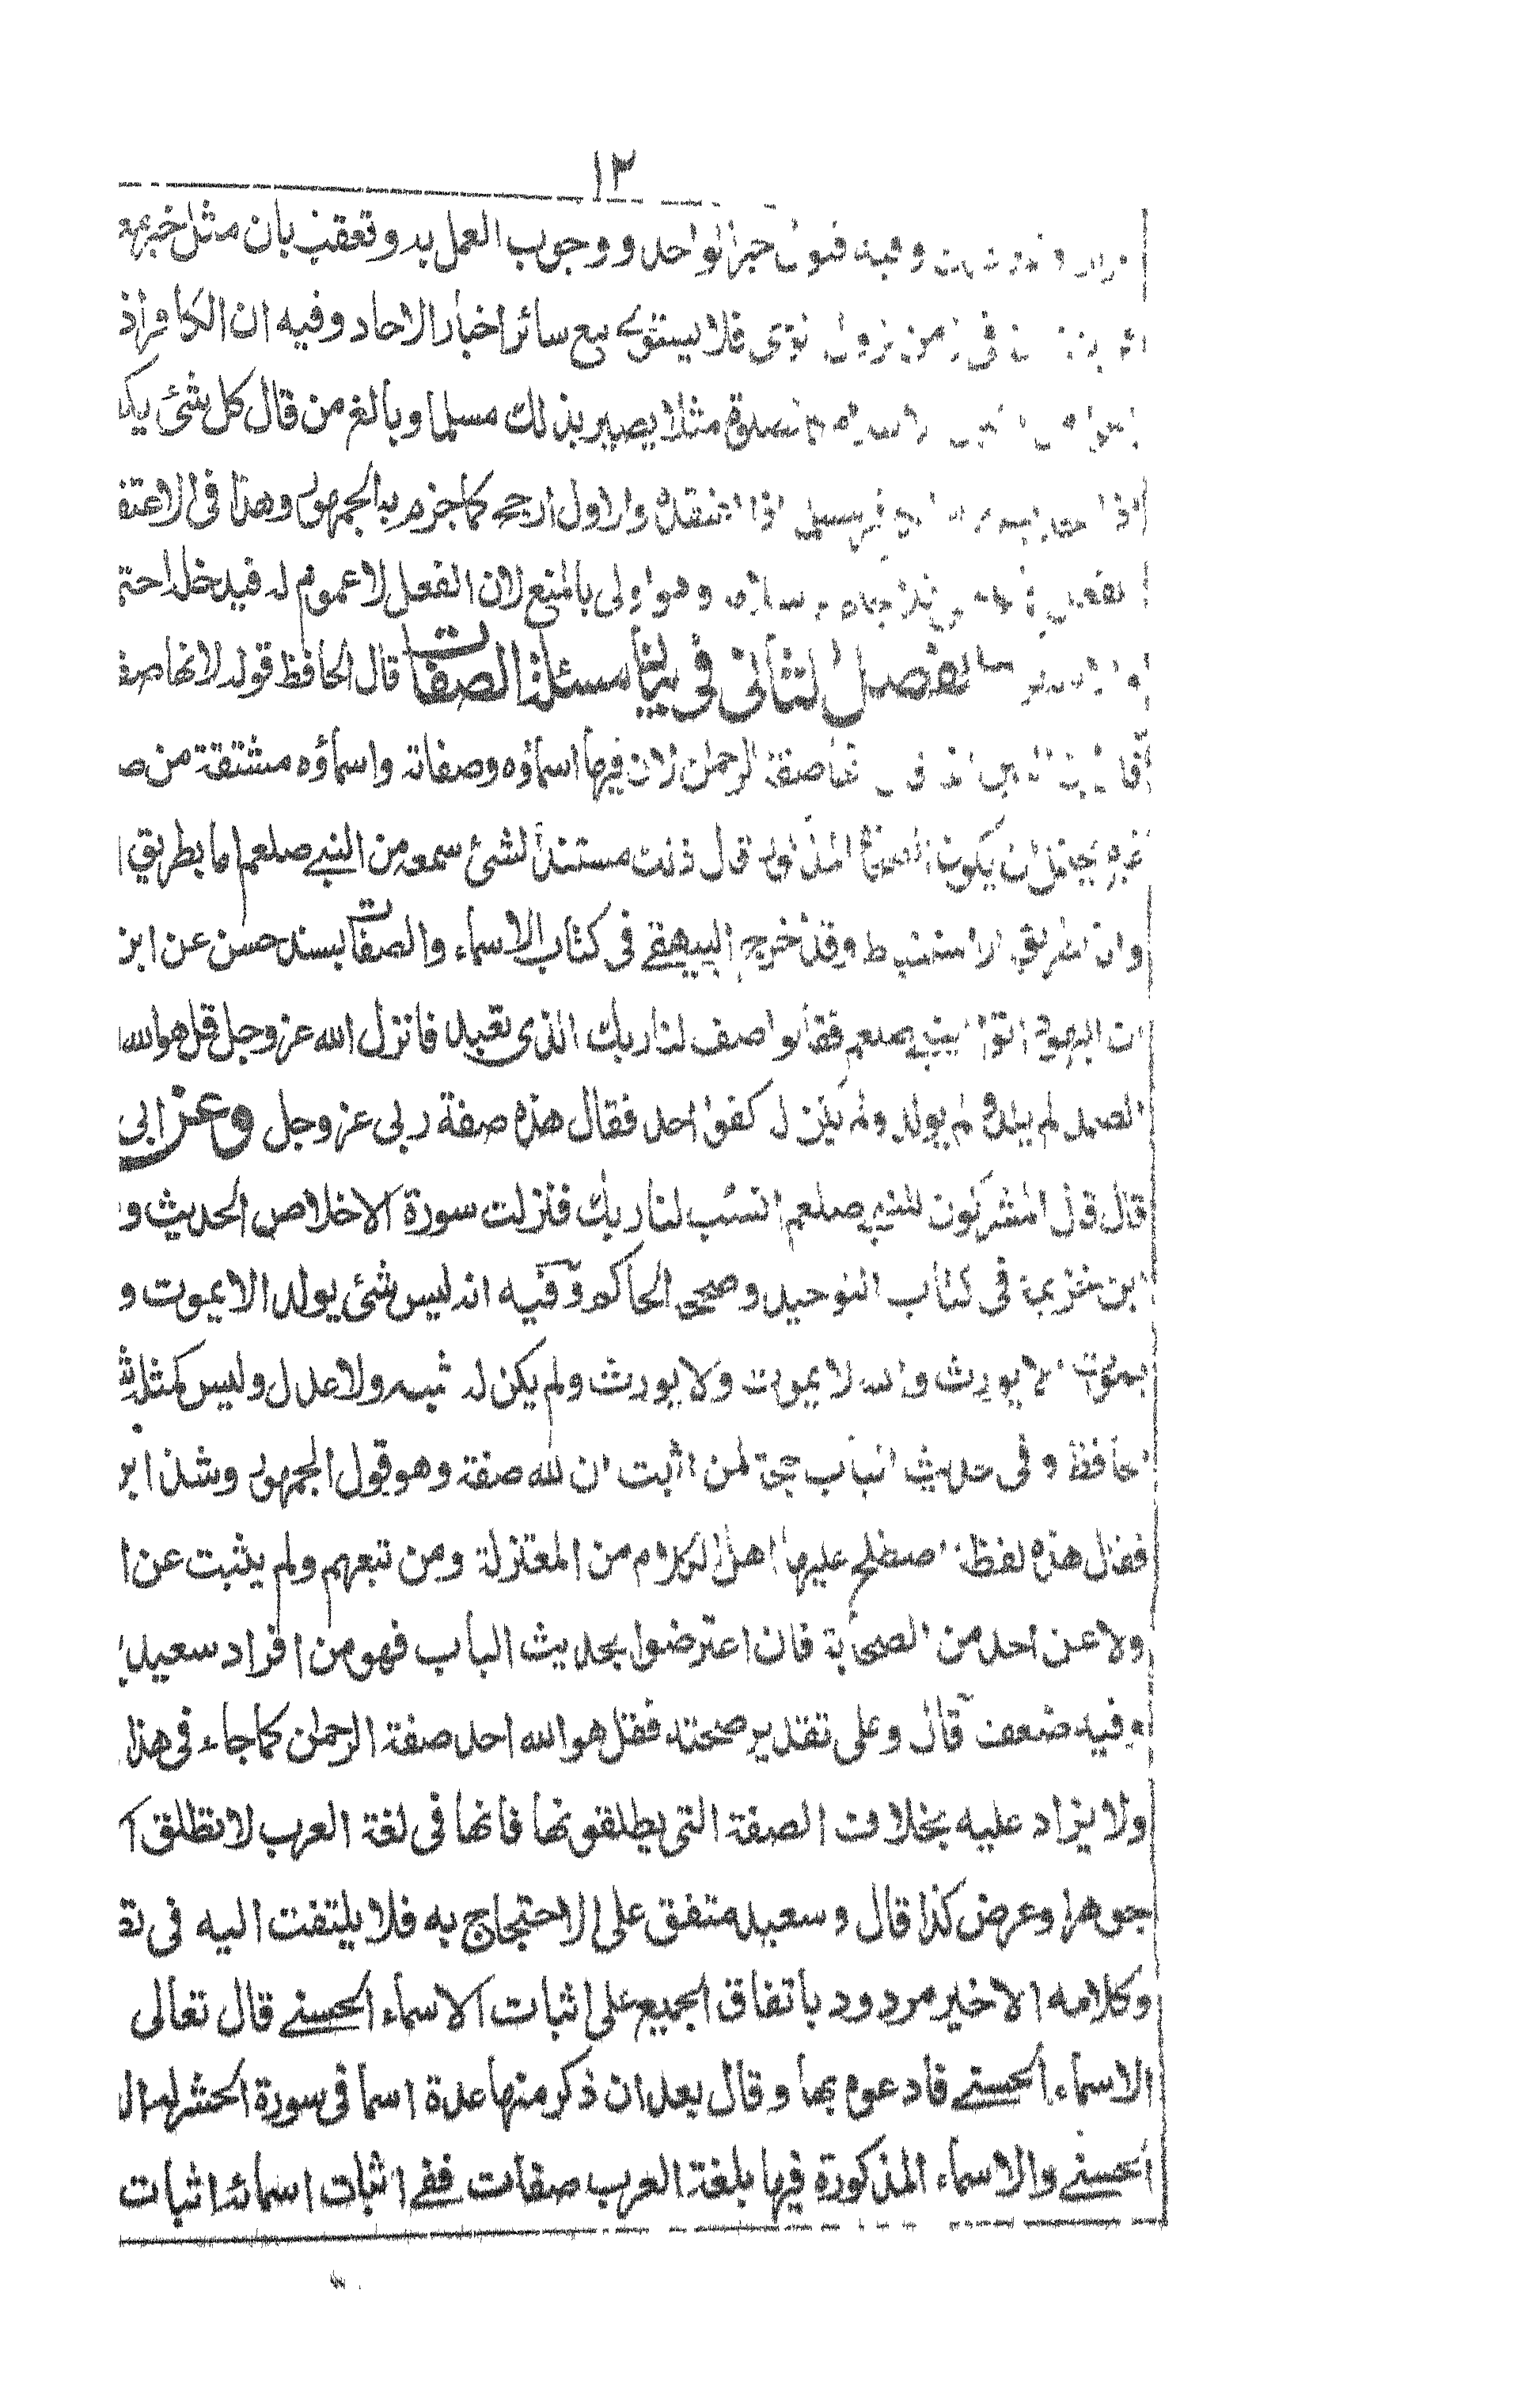 ١٢
وفيه قبول خبر الواحد و وجوب العمل به وتعقب بان مثل خبرهم
فى زمن نزول فلا يستوى مع سائر اخبار الاحاد وفيه ان الكافر اذ
مثلا يصير بذلك مسلما وبالغ من قال كل شئ يكـ
والاول ارجح كما جزم به الجمهور وهذا فى الاعتقـ
وهو اولى بالمنع لان الفعل لا عموم له فيدخله احتـ
الفصل الثانى فى بيان مسئلة الصفات قال الحافظ قوله لانها صفـ
صفة الرحمن لان فيها اسماؤه وصفاته واسماؤه مشتقة من صـ
غيره يحتمل ان يكون قال ذلك مستندا لشئ سمعه من النبى صلعم اما بطريق ا
وان بطريق الاستنباط وقد اخرج البيهقى فى كتاب الاسماء والصفات بسند حسن عن ابن
ان اليهود اتوا النبى صلعم فقالوا صف لنا ربك الذى تعبد فانزل الله عز وجل قل هو الله
الصمد لم يلد و لم يولد ولم كفوا احد فقال هذه صفة ربى عز وجل وعن ابى
قال قال المشركون للنبى صلعم انسب لنا ربك فنزلت سورة الاخلاص الحديث و
ابن خزيمة فى كتاب التوحيد وصححه الحاكم وفيه انه ليس شئ يولد الا يموت و
يموت الا يورث والله لا يموت ولا يورث ولم يكن له شبه ولا عدل وليس كمثله شـ
الحافظ و فى حديث الباب حجة لمن اثبت ان لله صفة وهو قول الجمهور وشذ ابن
فقال هذه لفظة اصطلح عليها اهل الكلام من المعتزلة ومن تبعهم ولم يثبت عن ا
ولا عن احد من الصحابة فان اعترضوا بحديث الباب فهو من افراد سعيد
وفيه ضعف قال وعلى تقدير صحته فقل هو الله احد صفة الرحمن كما جاء فى هذا
ولا يزاد عليه بخلاف الصفة التى يطلقونها فانها فى لغة العرب لا تطلق ا
جوهر او عرض كذا قال و سعيد متفق على الاحتجاج به فلا يلتفت اليه فى تـ
وكلامه الاخير مردود باتفاق الجميع على اثبات الاسماء الحسنى قال تعالى
الاسماء الحسنى فادعوه بها و قال بعد ان ذكر منها عدة اسما فى سورة الحشر له ال
الحسنى والاسماء المذكورة فيها بلغة العرب صفات ففى اثبات اسمائه اثبات